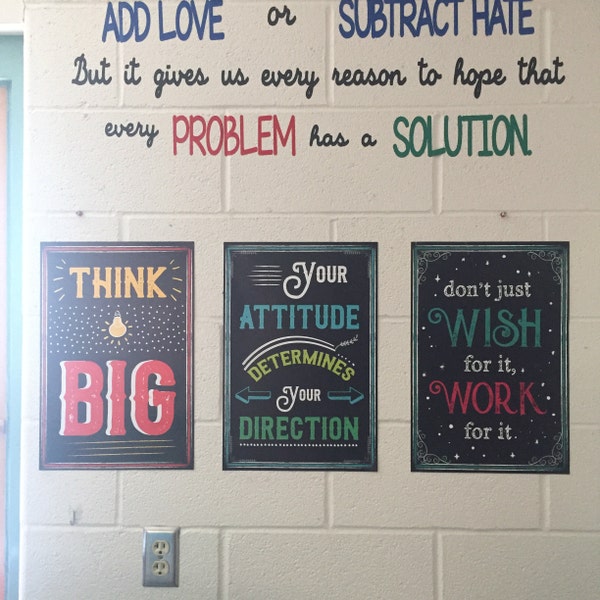 ADD LOVE or SUBTRACT HATE
But it gives us every reason to hope that
every PROBLEM has a SOLUTION.
THINK
BIG
Your
ATTITUDE
DETERMINES
Your
DIRECTION
don't just
WISH
for it,
WORK
for it